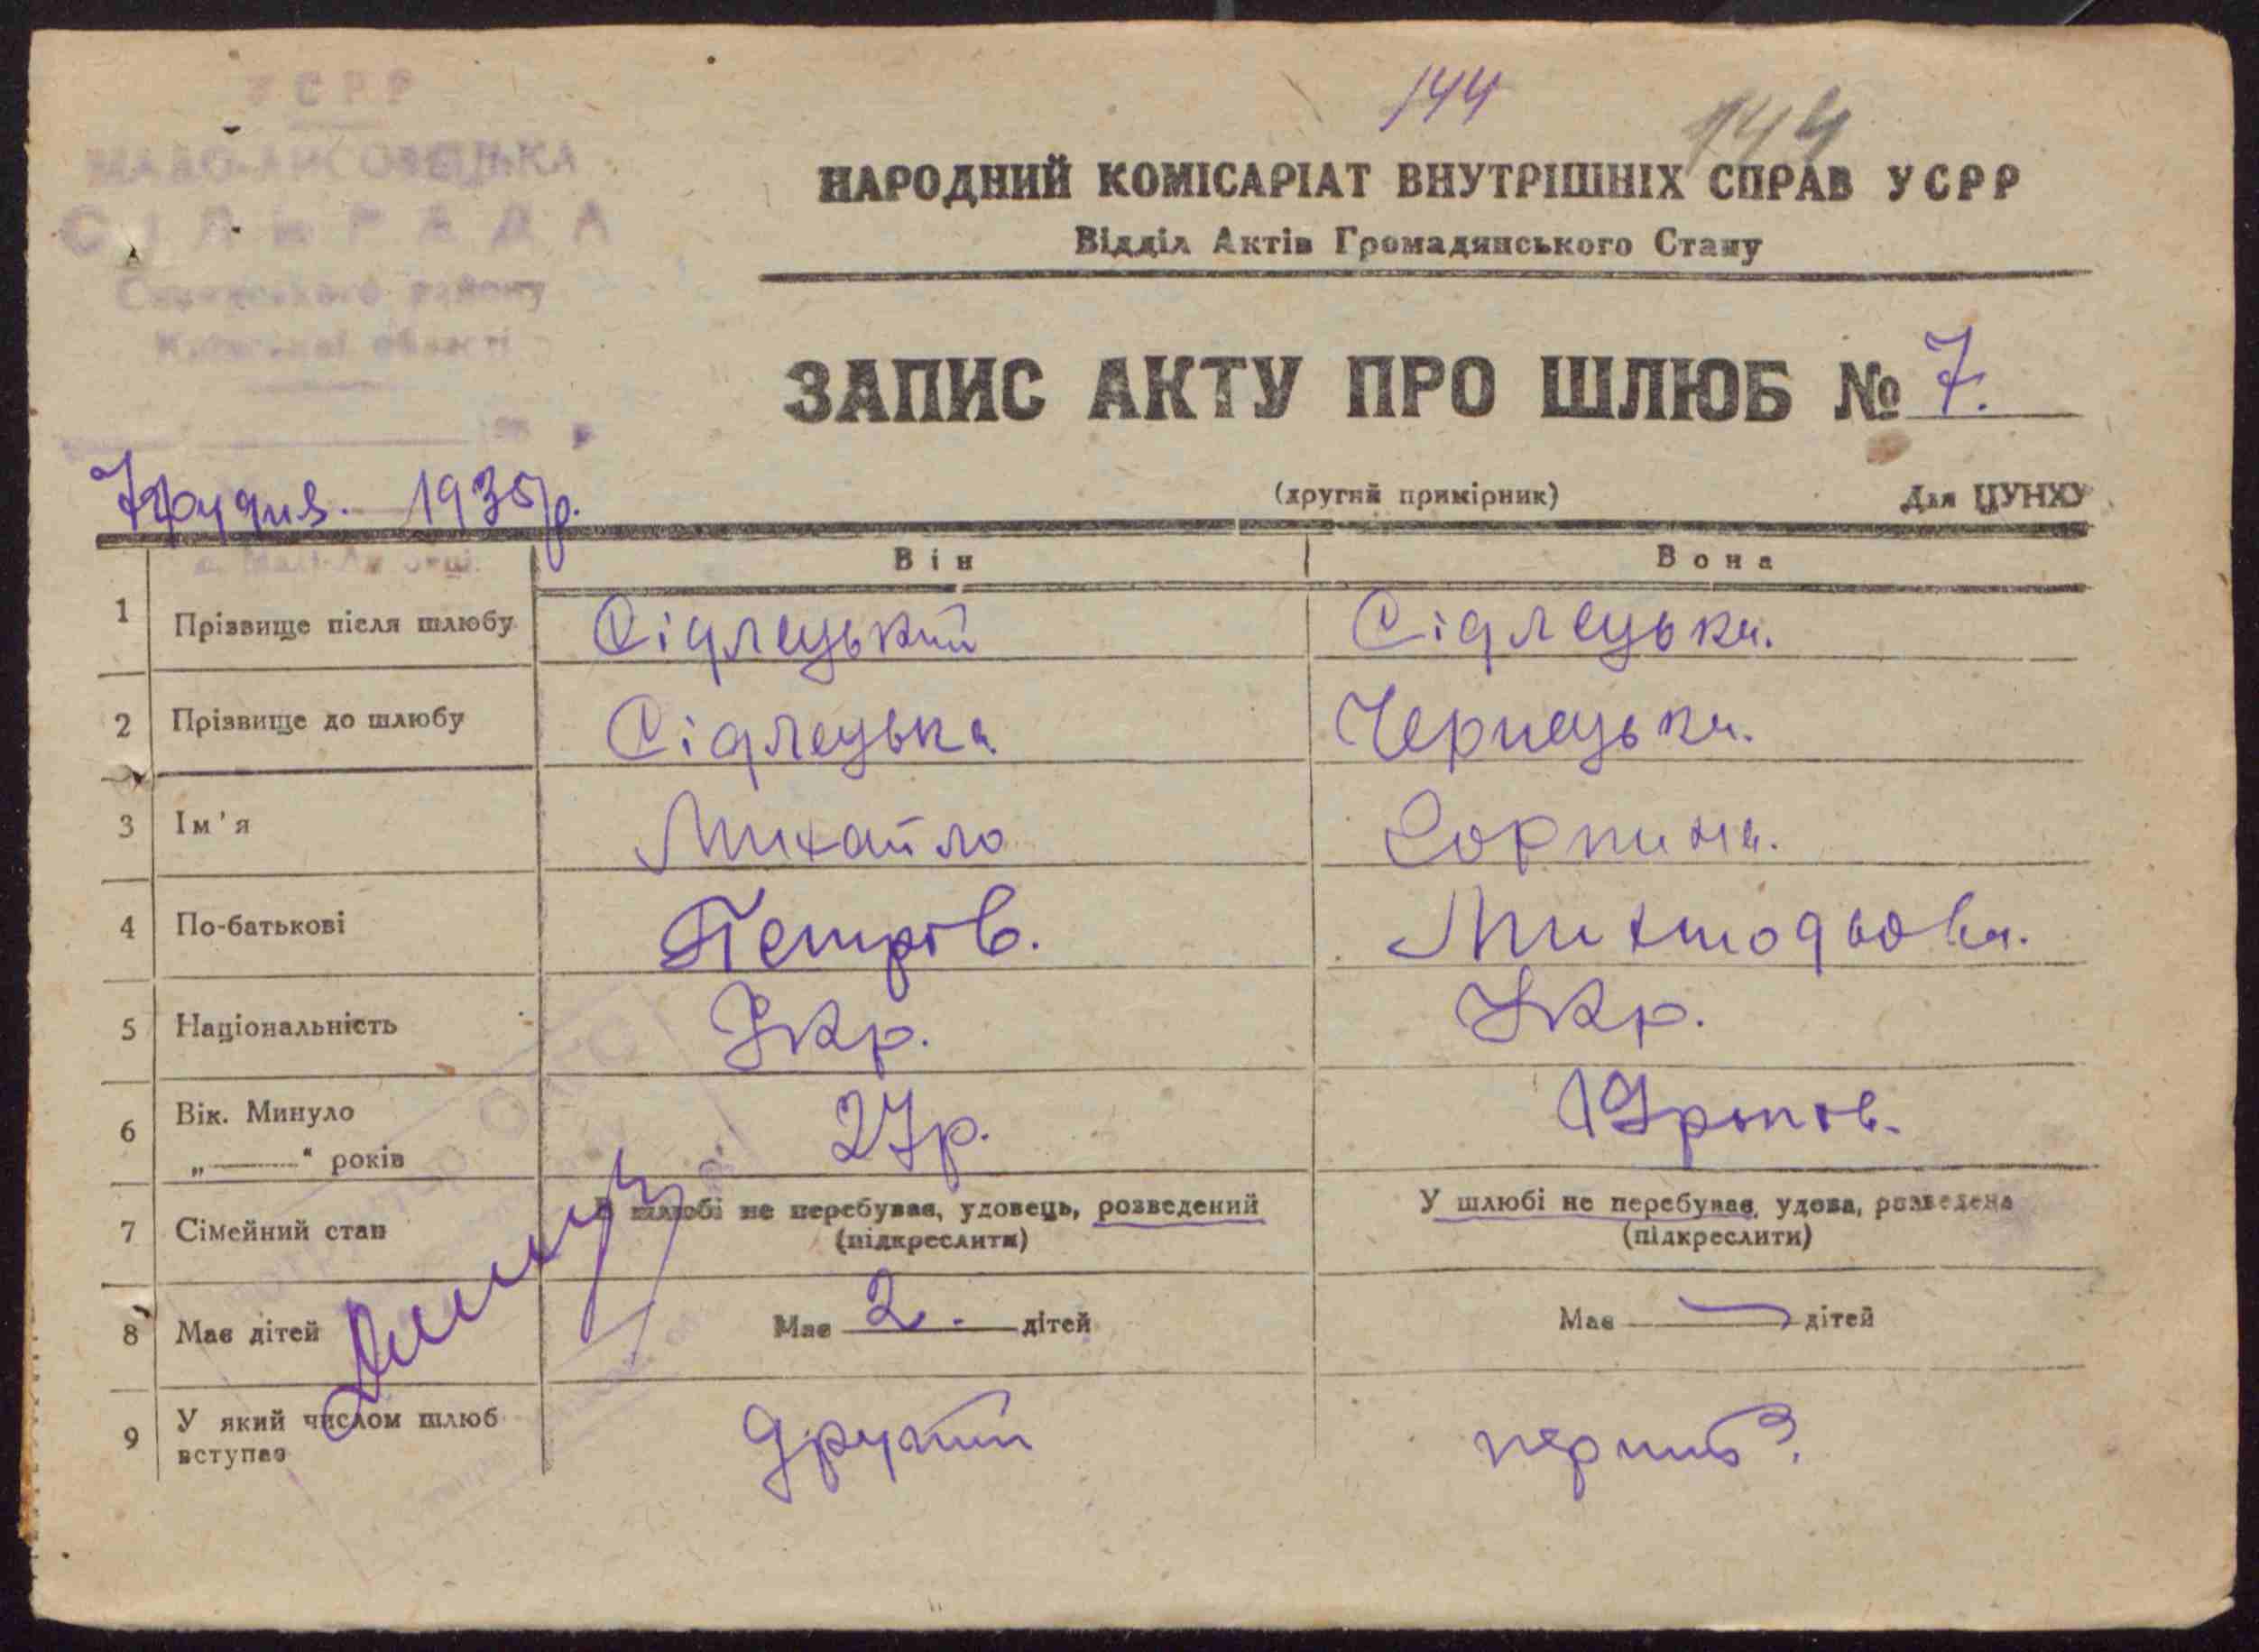 144
144
УСРР
МАЛО-ЛИСОВЕЦЬКА
СІЛЬРАДА
району
області
НАРОДНИЙ КОМІСАРІАТ ВНУТРІШНІХ СПРАВ УСРР
Відділ Актів Громадянського Стану
ЗАПИС АКТУ ПРО ШЛЮБ № 7.
7 грудня. 1935 р.
(другий примірник) Для ЦУНХУ
Він Вона
1 Прізвище після шлюбу Сідлецький Сідлецька.
2 Прізвище до шлюбу Сідлецька Чернецька.
3 Ім'я Михайло
4 По-батькові Петрів.
5 Національність Укр. Укр.
6 Вік. Минуло 27р. 19 років.
„ “ років
7 Сімейний стан В шлюбі не перебував, удовець, розведений У шлюбі не перебував, удова, розведена
(підкреслити) (підкреслити)
8 Має дітей Має 2. дітей Має — дітей
9 У який числом шлюб другий перший.
вступає